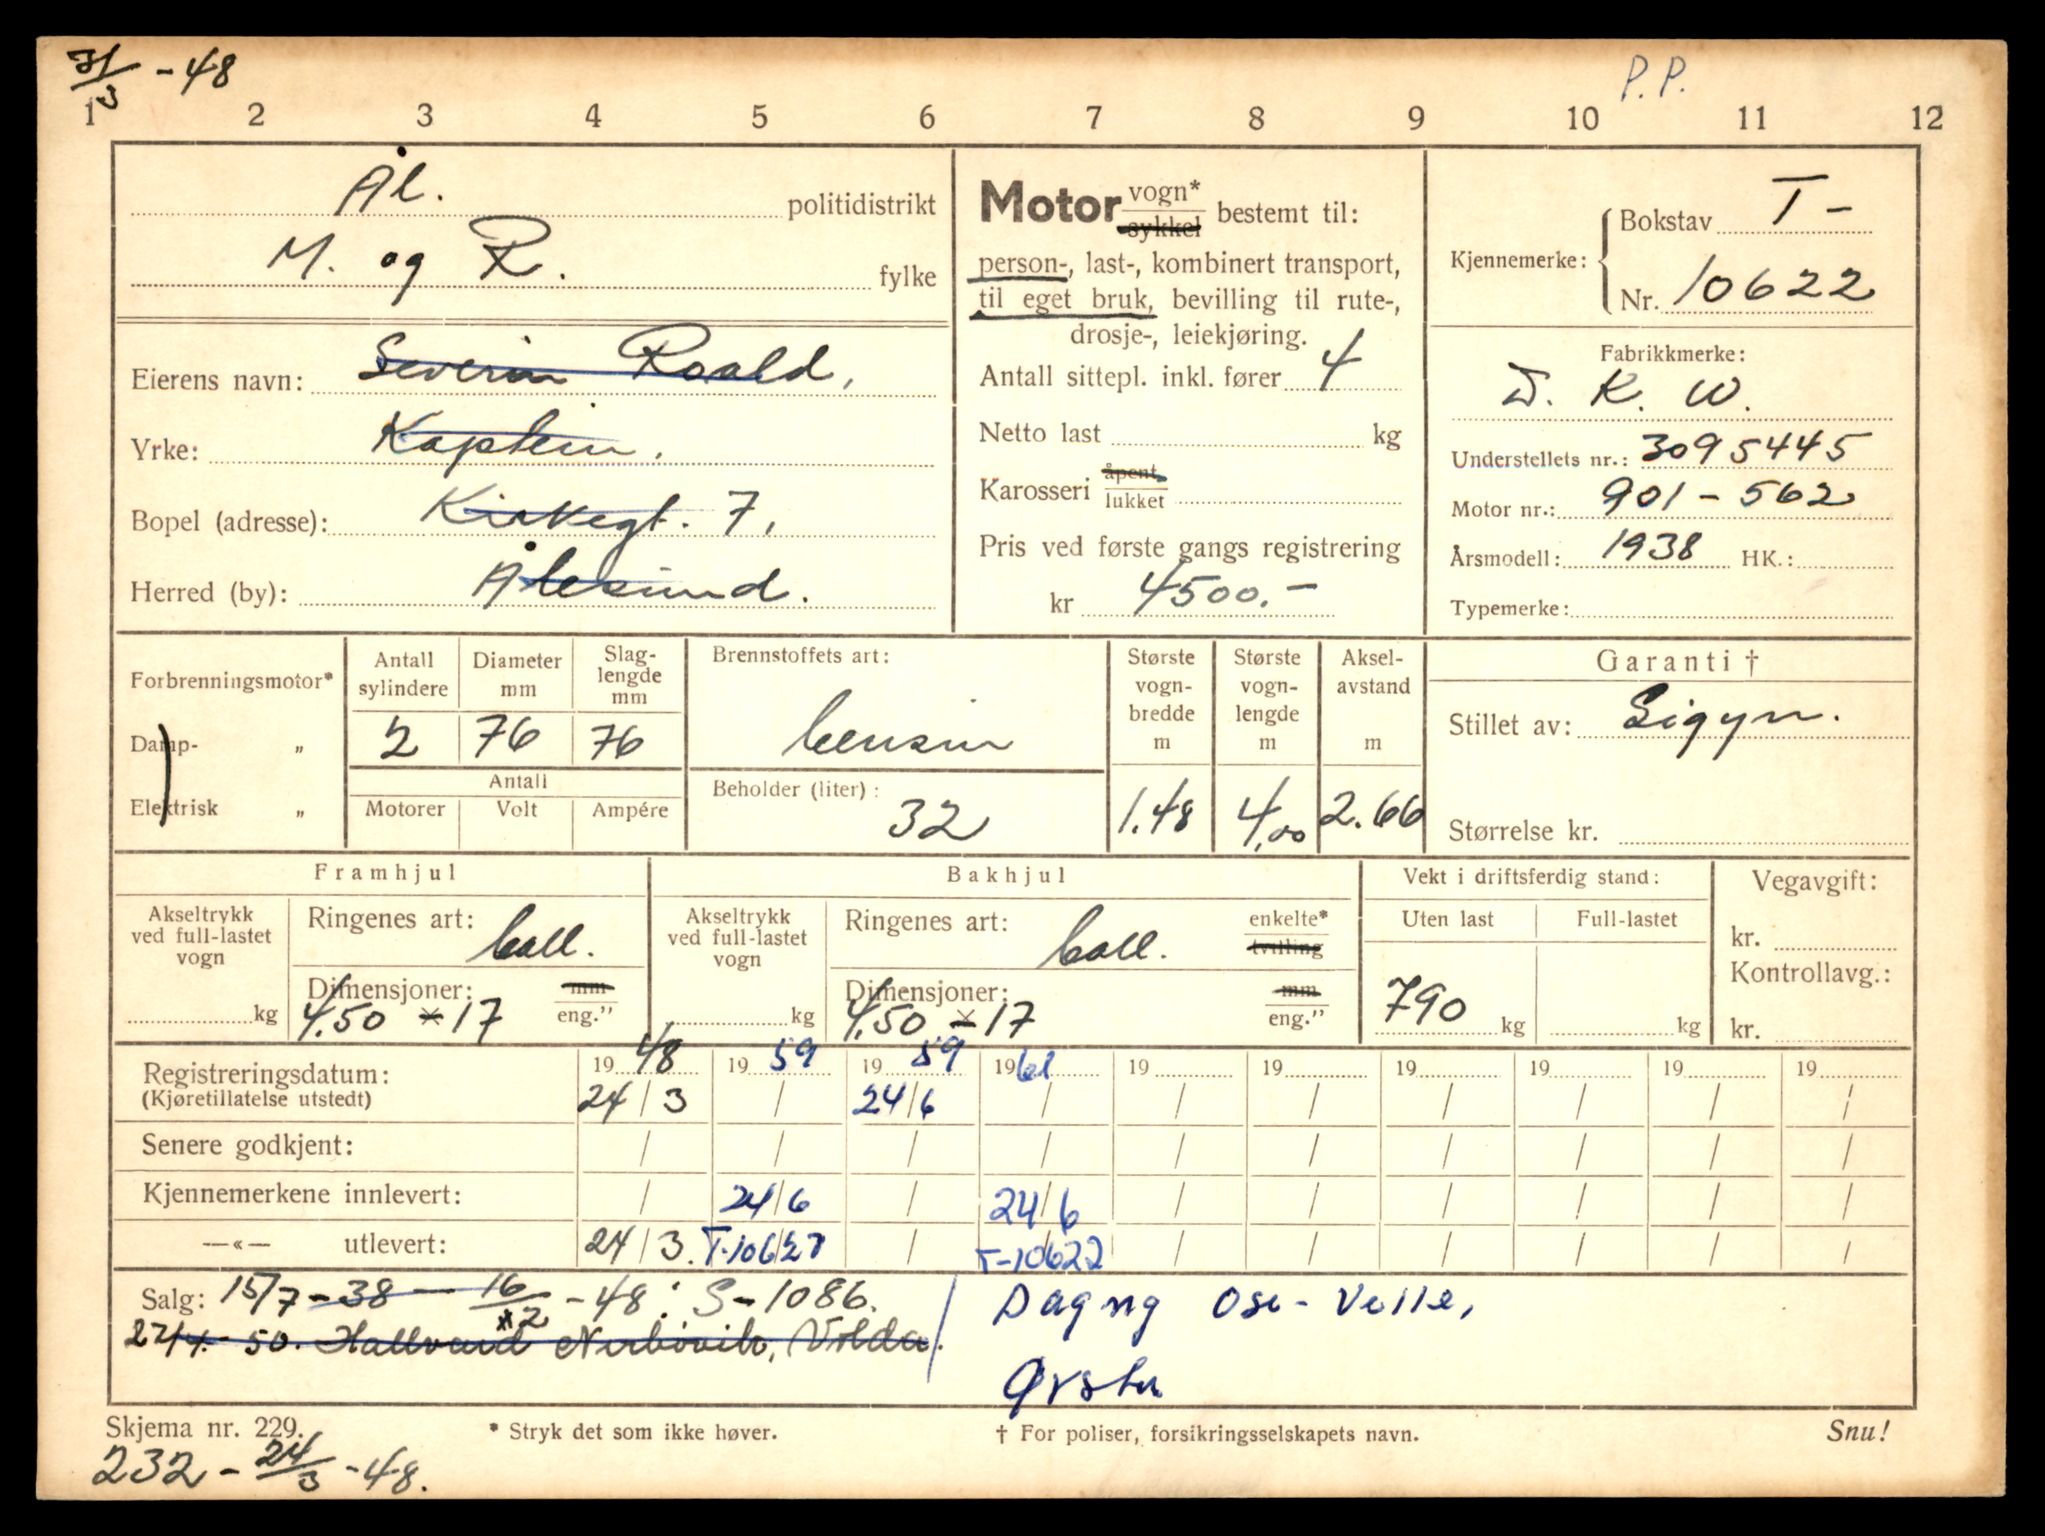 31/3 - 48
P. P.
1 2 3 4 5 6 7 8 9 10 11 12
Ål. politidistrikt
M. og R. fylke
Eierens navn: Severin Roald,
Yrke: Kaptein.
Bopel (adresse): Kirkegt. 7,
Herred (by): Ålesund.
Motor vogn* sykkel bestemt til:
person-, last-, kombinert transport,
til eget bruk, bevilling til rute-,
drosje-, leiekjøring.
Antall sittepl. inkl. fører 4
Netto last kg
Karosseri åpent lukket
Pris ved første gangs registrering
kr 4500.-
Kjennemerke: Bokstav T -
Nr. 10622
Fabrikkmerke:
D. K. W.
Understellets nr.: 3095445
Motor nr.: 901 - 562
Årsmodell: 1938 HK.:
Typemerke:
Forbrenningsmotor*
Damp- „
Elektrisk „
Antall sylindere 2
Diameter mm 76
Slaglengde mm 76
Antall
Motorer Volt Ampére
Brennstoffets art:
bensin
Beholder (liter):
32
Største vognbredde m 1.48
Største vognlengde m 4,00
Akselavstand m 2.66
Garanti †
Stillet av: Sigyn.
Størrelse kr.
Framhjul
Akseltrykk ved full-lastet vogn kg
Ringenes art: ball.
Dimensjoner: mm eng."
4.50 × 17
Bakhjul
Akseltrykk ved full-lastet vogn kg
Ringenes art: ball. enkelte* tvilling
Dimensjoner: mm eng."
4.50 × 17
Vekt i driftsferdig stand:
Uten last Full-lastet
790 kg kg
Vegavgift:
kr.
Kontrollavg.:
kr.
Registreringsdatum: 19 48 19 59 19 59 19 61 19 19 19 19 19 19
(Kjøretillatelse utstedt) 24/3 / 24/6 / / / / / / /
Senere godkjent: / / / / / / / / / /
Kjennemerkene innlevert: / 24/6 / 24/6 / / / / / /
—«— utlevert: 24/3. T-10627 / T-10622 / / / / / /
Salg: 15/7 - 38 — 16/2 - 48: S - 1086.
50. Hallvard Volda.
Dagny Ose - Velle,
Ørsta
Skjema nr. 229.
* Stryk det som ikke høver.
† For poliser, forsikringsselskapets navn.
Snu!
232 - 24/3 - 48.